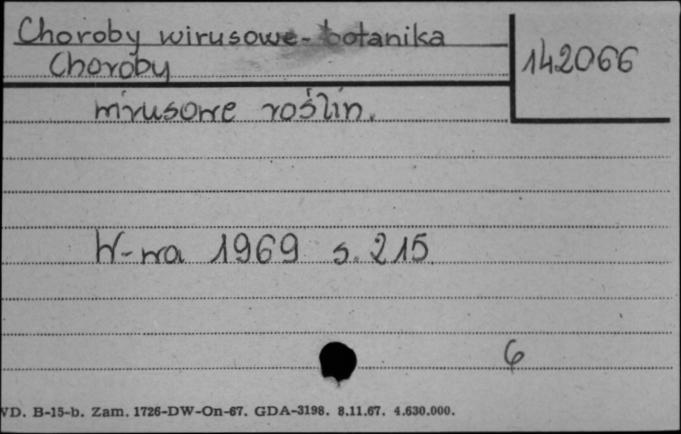 Choroby wirusowe - botanika
Choroby
142066
wirusowe roślin.
W-wa 1969 s. 215
6
VD. B-15-b. Zam. 1726-DW-On-67. GDA-3198. 8.11.67. 4.630.000.